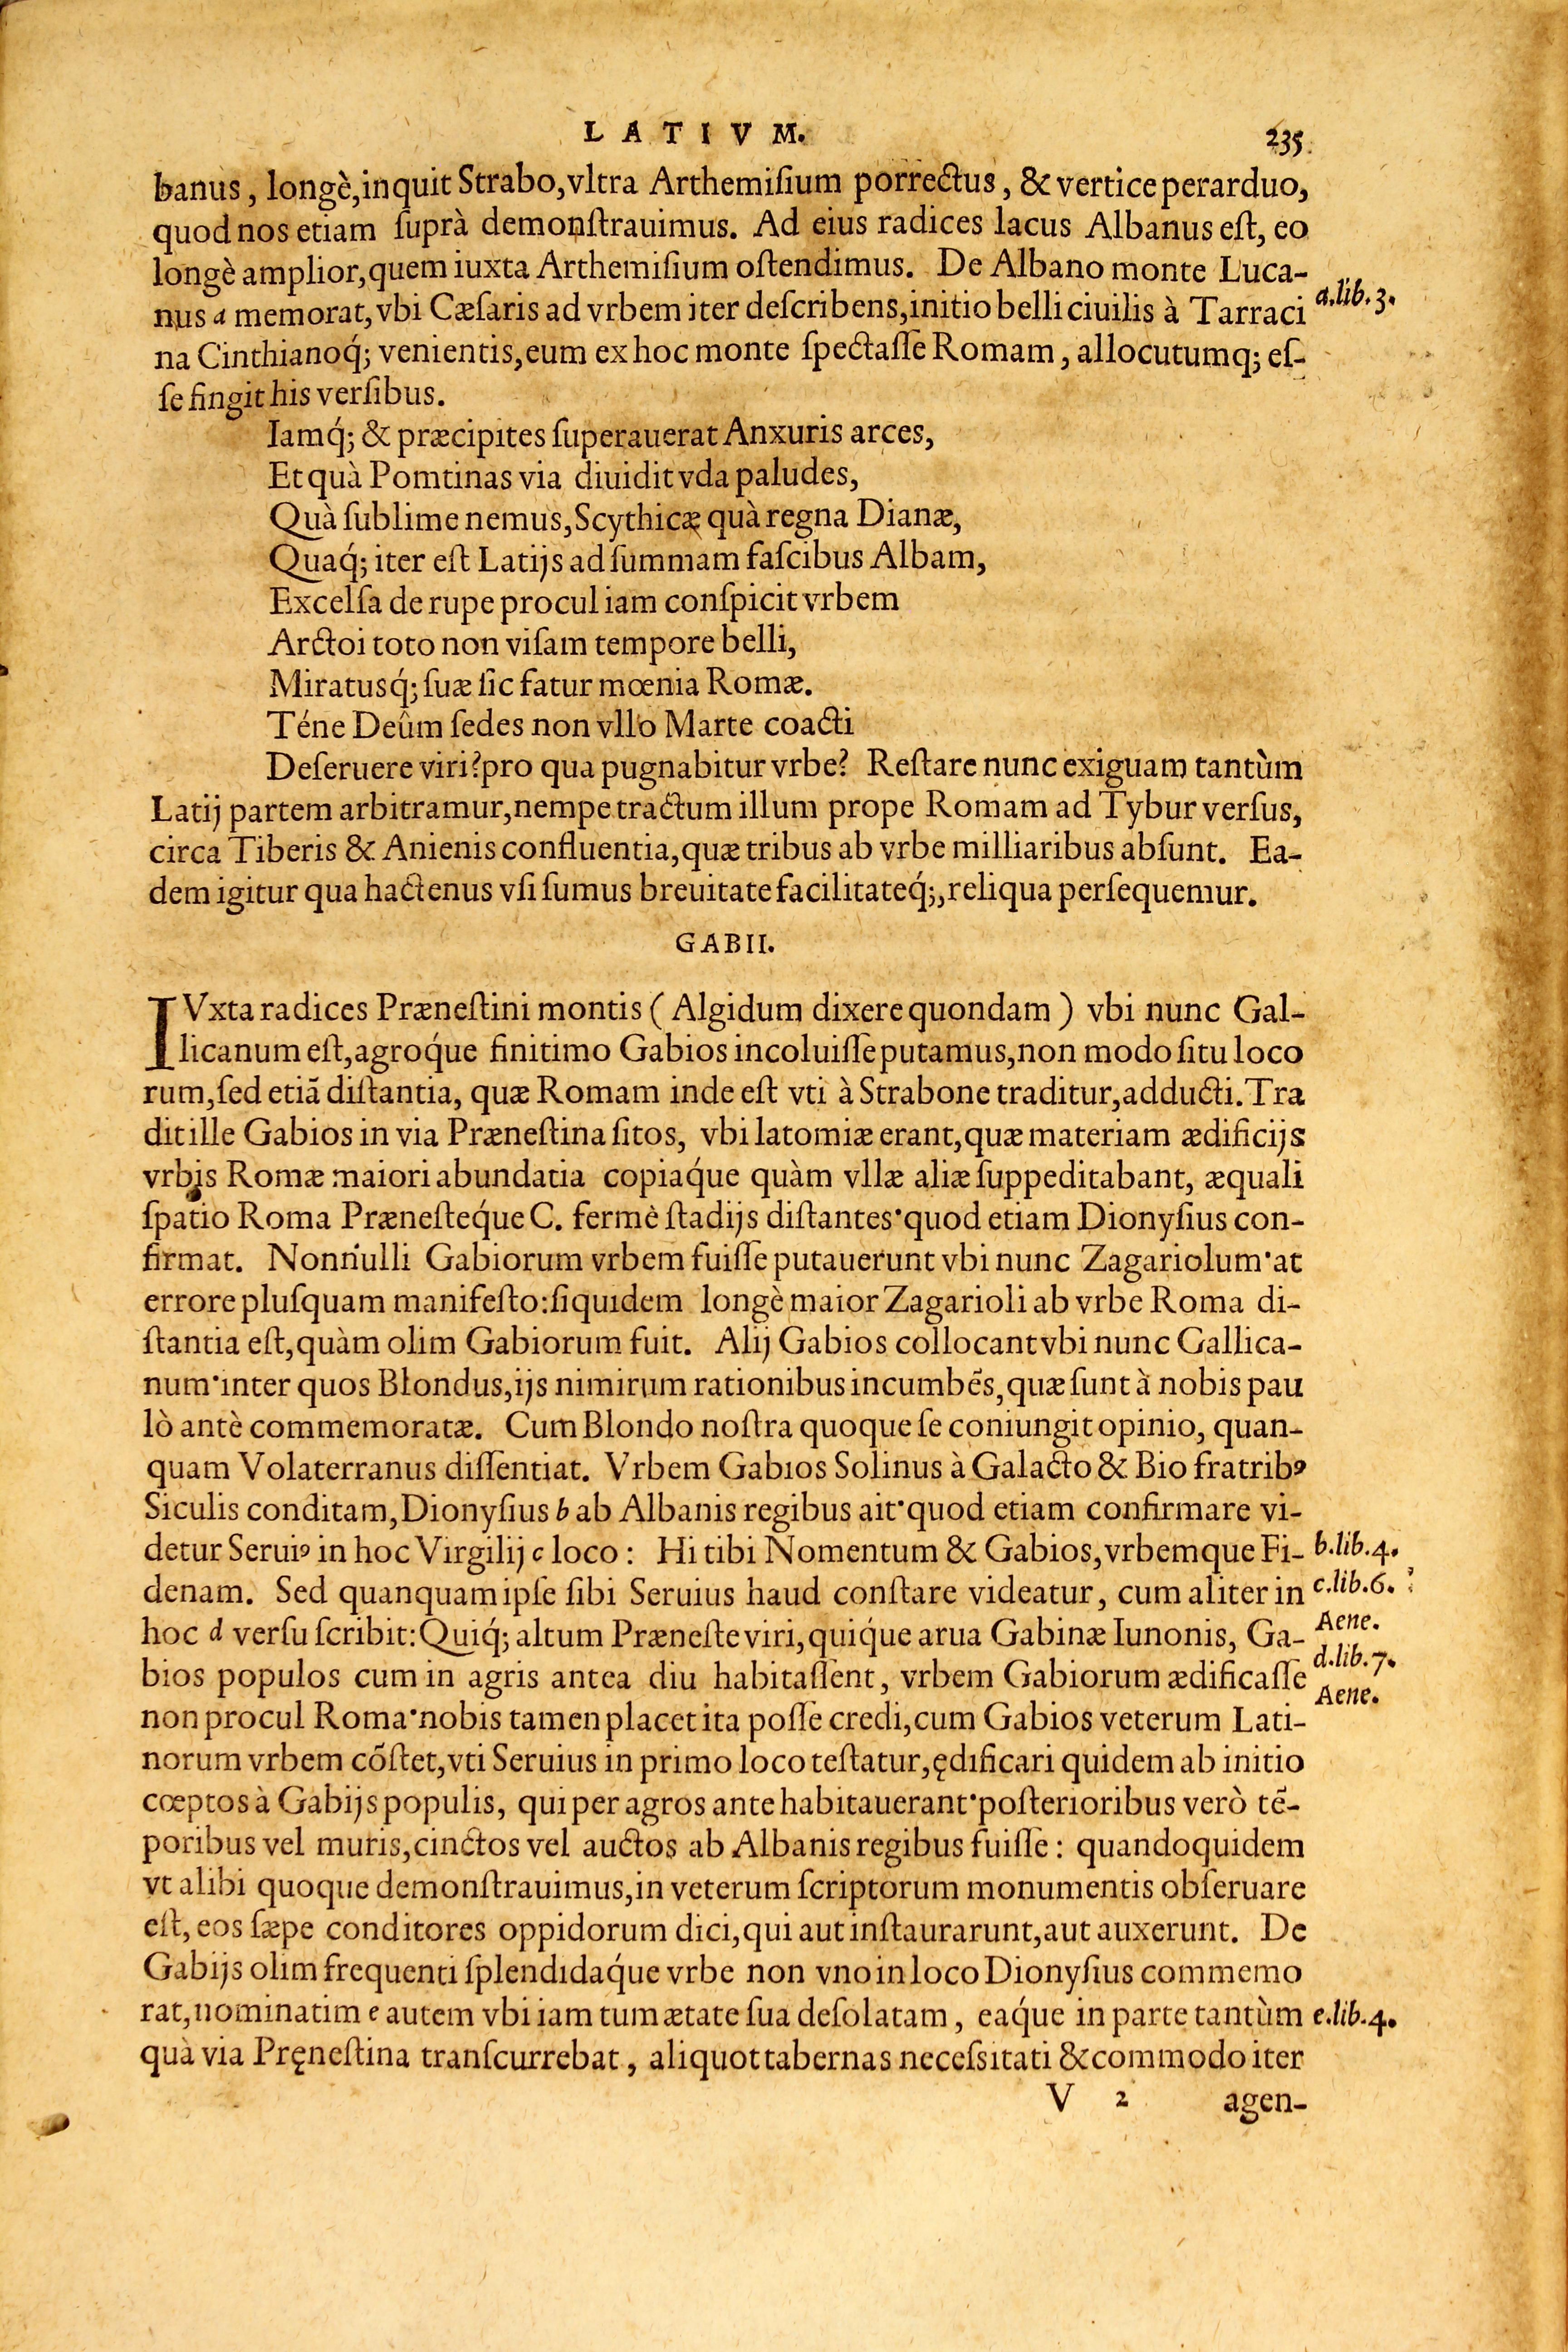 LATIVM.
235
banus, longè, inquit Strabo, vltra Arthemiſium porrectus, & vertice perarduo,
quod nos etiam ſuprà demonſtrauimus. Ad eius radices lacus Albanus eſt, eo
longè amplior, quem iuxta Arthemiſium oſtendimus. De Albano monte Luca-
nus a memorat, vbi Cæſaris ad vrbem iter deſcribens, initio belli ciuilis à Tarraci
a.lib.3.
na Cinthianoq́; venientis, eum ex hoc monte ſpectaſſe Romam, allocutumq; eſ-
ſe fingit his verſibus.
Iamq́; & præcipites ſuperauerat Anxuris arces,
Et quà Pomtinas via diuidit vda paludes,
Quà ſublime nemus, Scythicæ quà regna Dianæ,
Quaq́; iter eſt Latijs ad ſummam faſcibus Albam,
Excelſa de rupe procul iam conſpicit vrbem
Arctoi toto non viſam tempore belli,
Miratusq́; ſuæ ſic fatur mœnia Romæ.
Téne Deûm ſedes non vllo Marte coacti
Deſeruere viri? pro qua pugnabitur vrbe? Reſtare nunc exiguam tantùm
Latij partem arbitramur, nempe tractum illum prope Romam ad Tybur verſus,
circa Tiberis & Anienis confluentia, quæ tribus ab vrbe milliaribus abſunt. Ea-
dem igitur qua hactenus vſi ſumus breuitate facilitateq́;, reliqua perſequemur.
GABII.
IVxta radices Præneſtini montis (Algidum dixere quondam) vbi nunc Gal-
licanum eſt, agroq́ue finitimo Gabios incoluiſſe putamus, non modo ſitu loco
rum, ſed etiã diſtantia, quæ Romam inde eſt vti à Strabone traditur, adducti. Tra
dit ille Gabios in via Præneſtina ſitos, vbi latomiæ erant, quæ materiam ædificijs
vrbis Romæ maiori abundatia copiaq́ue quàm vllæ aliæ ſuppeditabant, æquali
ſpatio Roma Præneſteq́ue C. fermè ſtadijs diſtantes· quod etiam Dionyſius con-
firmat. Nonnulli Gabiorum vrbem fuiſſe putauerunt vbi nunc Zagariolum· at
errore pluſquam manifeſto: ſiquidem longè maior Zagarioli ab vrbe Roma di-
ſtantia eſt, quàm olim Gabiorum fuit. Alij Gabios collocant vbi nunc Gallica-
num· inter quos Blondus, ijs nimirum rationibus incumbẽs, quæ ſunt à nobis pau
lò antè commemoratæ. Cum Blondo noſtra quoque ſe coniungit opinio, quan-
quam Volaterranus diſſentiat. Vrbem Gabios Solinus à Galacto & Bio fratribꝰ
Siculis conditam, Dionyſius b ab Albanis regibus ait· quod etiam confirmare vi-
detur Seruiꝰ in hoc Virgilij c loco: Hi tibi Nomentum & Gabios, vrbemque Fi-
b.lib.4.
denam. Sed quanquam ipſe ſibi Seruius haud conſtare videatur, cum aliter in
c.lib.6.
hoc d verſu ſcribit: Quiq́; altum Præneſte viri, quiq́ue arua Gabinæ Iunonis, Ga-
Aene.
bios populos cum in agris antea diu habitaſſent, vrbem Gabiorum ædificaſſe
d.lib.7.
Aene.
non procul Roma· nobis tamen placet ita poſſe credi, cum Gabios veterum Lati-
norum vrbem cõſtet, vti Seruius in primo loco teſtatur, ędificari quidem ab initio
cœptos à Gabijs populis, qui per agros ante habitauerant· poſterioribus verò tẽ-
poribus vel muris, cinctos vel auctos ab Albanis regibus fuiſſe: quandoquidem
vt alibi quoque demonſtrauimus, in veterum ſcriptorum monumentis obſeruare
eſt, eos ſæpe conditores oppidorum dici, qui aut inſtaurarunt, aut auxerunt. De
Gabijs olim frequenti ſplendidaq́ue vrbe non vno in loco Dionyſius commemo
rat, nominatim e autem vbi iam tum ætate ſua deſolatam, eaq́ue in parte tantùm
e.lib.4.
quà via Pręneſtina tranſcurrebat, aliquot tabernas neceſsitati & commodo iter
V 2
agen-